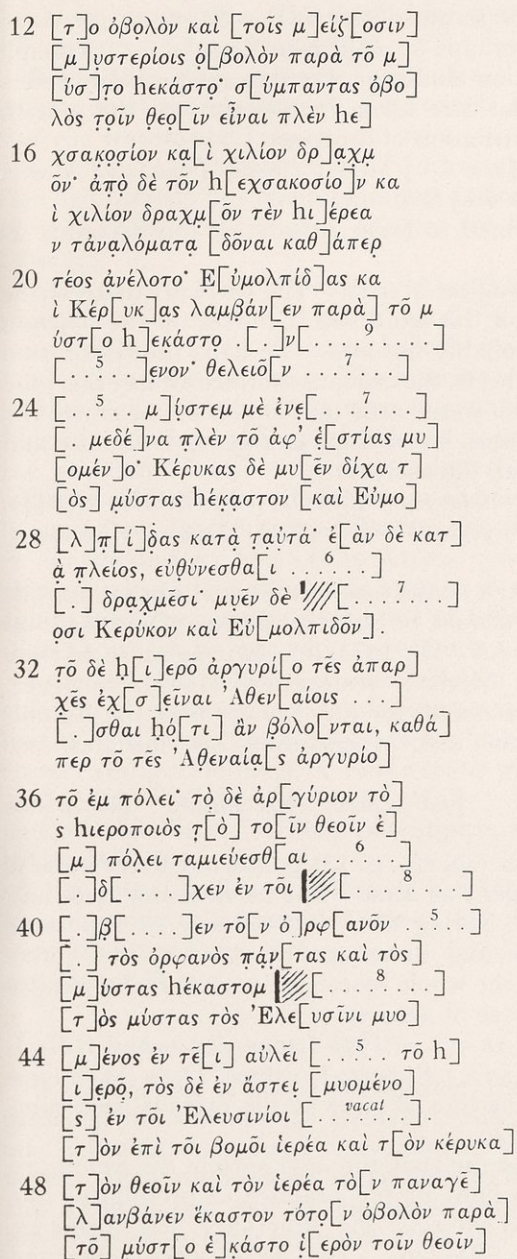 12 [τ]ο ὀβολὸν καὶ [τοῖς μ]είζ[οσιν]
[μ]υστερίοις ὀ̣[βολὸν παρὰ τõ μ]
[ύσ]το hεκάστο· σ[ύμπαντας ὀβο]
λὸς τ̣οῖν θεο[ῖν εἶναι πλὲν hε]
16 χσακο̣σίον κα̣[ὶ χιλίον δρ]α̣χμ
õν· ἀπὸ̣ δὲ τõν h[εχσακοσίο]ν κα
ὶ χιλίον δραχμ[õν τὲν hι]έρεα
ν τἀναλόματα̣ [δõναι καθ]άπερ
20 τέος ἀνέλοτο· Ε̣[ὐμολπίδ]ας κα
ὶ Κέρ[υκ]ας λαμβάν[εν παρὰ] τõ μ
ύστ[ο h]ε̣κάστο .[.]ν[. . . . 9 . . . . .]
[. . 5 . .]ε̣νον· θελειõ[ν . . . 7 . . . .]
24 [. . 5 . . μ]ύστεμ μὲ ἐνε̣[. . . 7 . . . .]
[. μεδέ]να πλὲν τõ ἀφ' ἑ̣[στίας μυ]
[ομέν]ο· Κέρυκας δὲ μυ[ε͂ν δίχα τ]
[ὸς] μύστας hέκα̣στον [καὶ Εὐμο]
28 [λ]π[ί]δ̣ας κατὰ̣ τ̣α̣ὐτά· ἐ̣[ὰν δὲ κατ]
ὰ̣ πλείος, εὐθύνεσθα[ι . . . 6 . . .]
[.] δραχμε͂σι· μυε͂ν δὲ [. . . 7 . . . .]
ο̣σι Κερύκον καὶ Εὐ[μολπιδõν].
32 τõ δὲ ḥ[ι]ερõ ἀργυρί[ο τε͂ς ἀπαρ]
χε͂ς ἐχ[σ]εῖναι Ἀθεν[αίοις . . .]
[.]σθαι ḥό̣[τι] ἂν βόλο[νται, καθά]
περ τõ τε͂ς Ἀθεναία̣[ς ἀργυρίο]
36 τõ ἐμ πόλει· τὸ̣ δὲ ἀρ[γύριον τὸ]
ς hιεροποιὸς τ̣[ὸ] το[ῖν θεοῖν ἐ]
[μ] πόλει ταμιεύεσθ[αι . . . 6 . . .]
[.]δ[. . . .]χεν ἐν τõι [. . . . 8 . . . .]
40 [.]β[. . . .]εν τõ[ν ὀ]ρφ[ανõν . . 5 . .]
[.] τὸς ὀρφανὸς πάν̣[τας καὶ τὸς]
[μ]ύστας hέκαστομ [. . . . 8 . . . .]
[τ]ὸς μύστας τὸς Ἐλε[υσῖνι μυο]
44 [μ]ένος ἐν τε͂[ι] αὐλε͂ι [. . 5 . . τõ h]
[ι]ε̣ρõ, τὸς δὲ ἐν ἄστει [μυομένο]
[ς] ἐν τõι Ἐλευσινίοι [. . . vacat . . . .].
[τ]ὸν ἐπὶ τõι βομõι ἱερέα καὶ τ[ὸν κέρυκα]
48 [τ]ὸν θεοῖν καὶ τὸν ἱερέα τὸ[ν παναγε͂]
[λ]ανβάνεν ἕκαστον τότο[ν ὀβολὸν παρὰ]
[τõ] μύστ[ο ἑ]κάστο ἱ̣[ερὸν τοῖν θεοῖν]